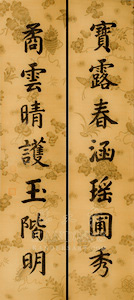 寶露春涵瑶圃秀
矞雲晴護玉階明